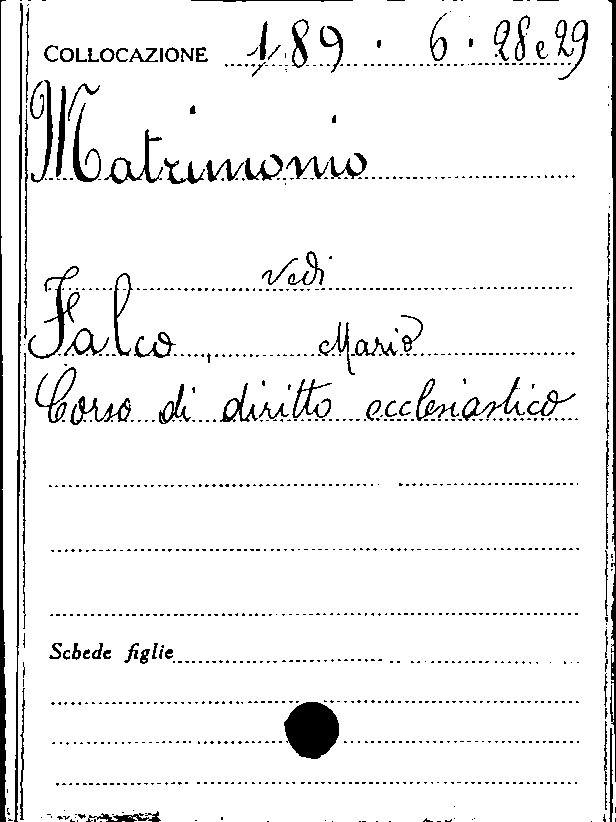 COLLOCAZIONE 189 · 6 · 28 e 29
Matrimonio
Vedi
Falco, Mario
Corso di diritto ecclesiastico
Schede figlie